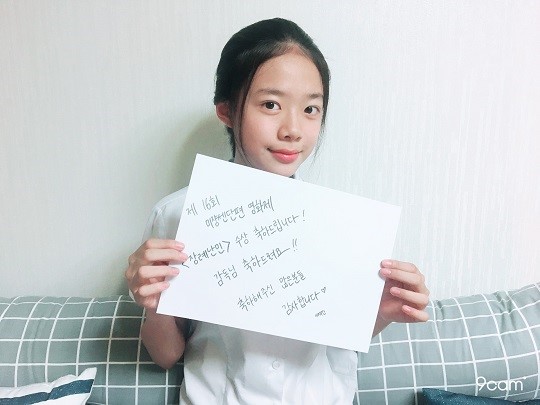 제 16회
미쟝센단편 영화제
<장례난민> 수상 축하드립니다!
감독님 축하드려요~!!
축하해주신 많은분들
감사합니다♡
9cam